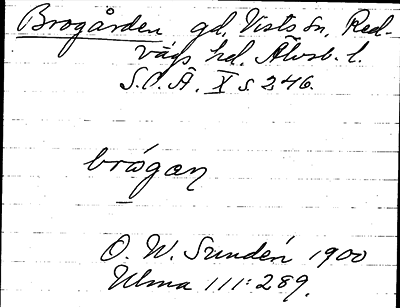 Brogården gd, Vists sn, Red-
vägs hd. Älvsb. l.
S.O.Ä. X s 246.
brógan
O. W. Sundén 1900
Ulma 111:289.